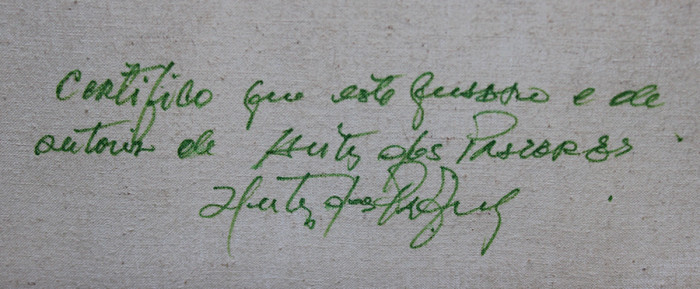 Certifico que este quadro e de
autoria de Heitor dos Prazeres
Heitor dos Prazeres